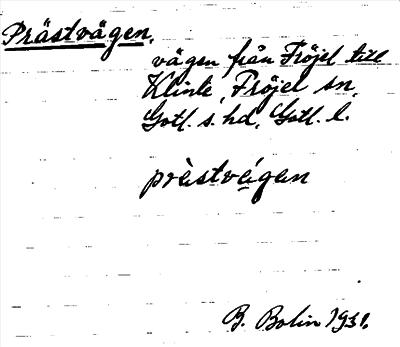 Prästvägen,
vägen från Fröjel till
Klinte, Fröjel sn,
Gotl. s. hd, Gotl. l.
prèstvégen
B. Bolin 1931.